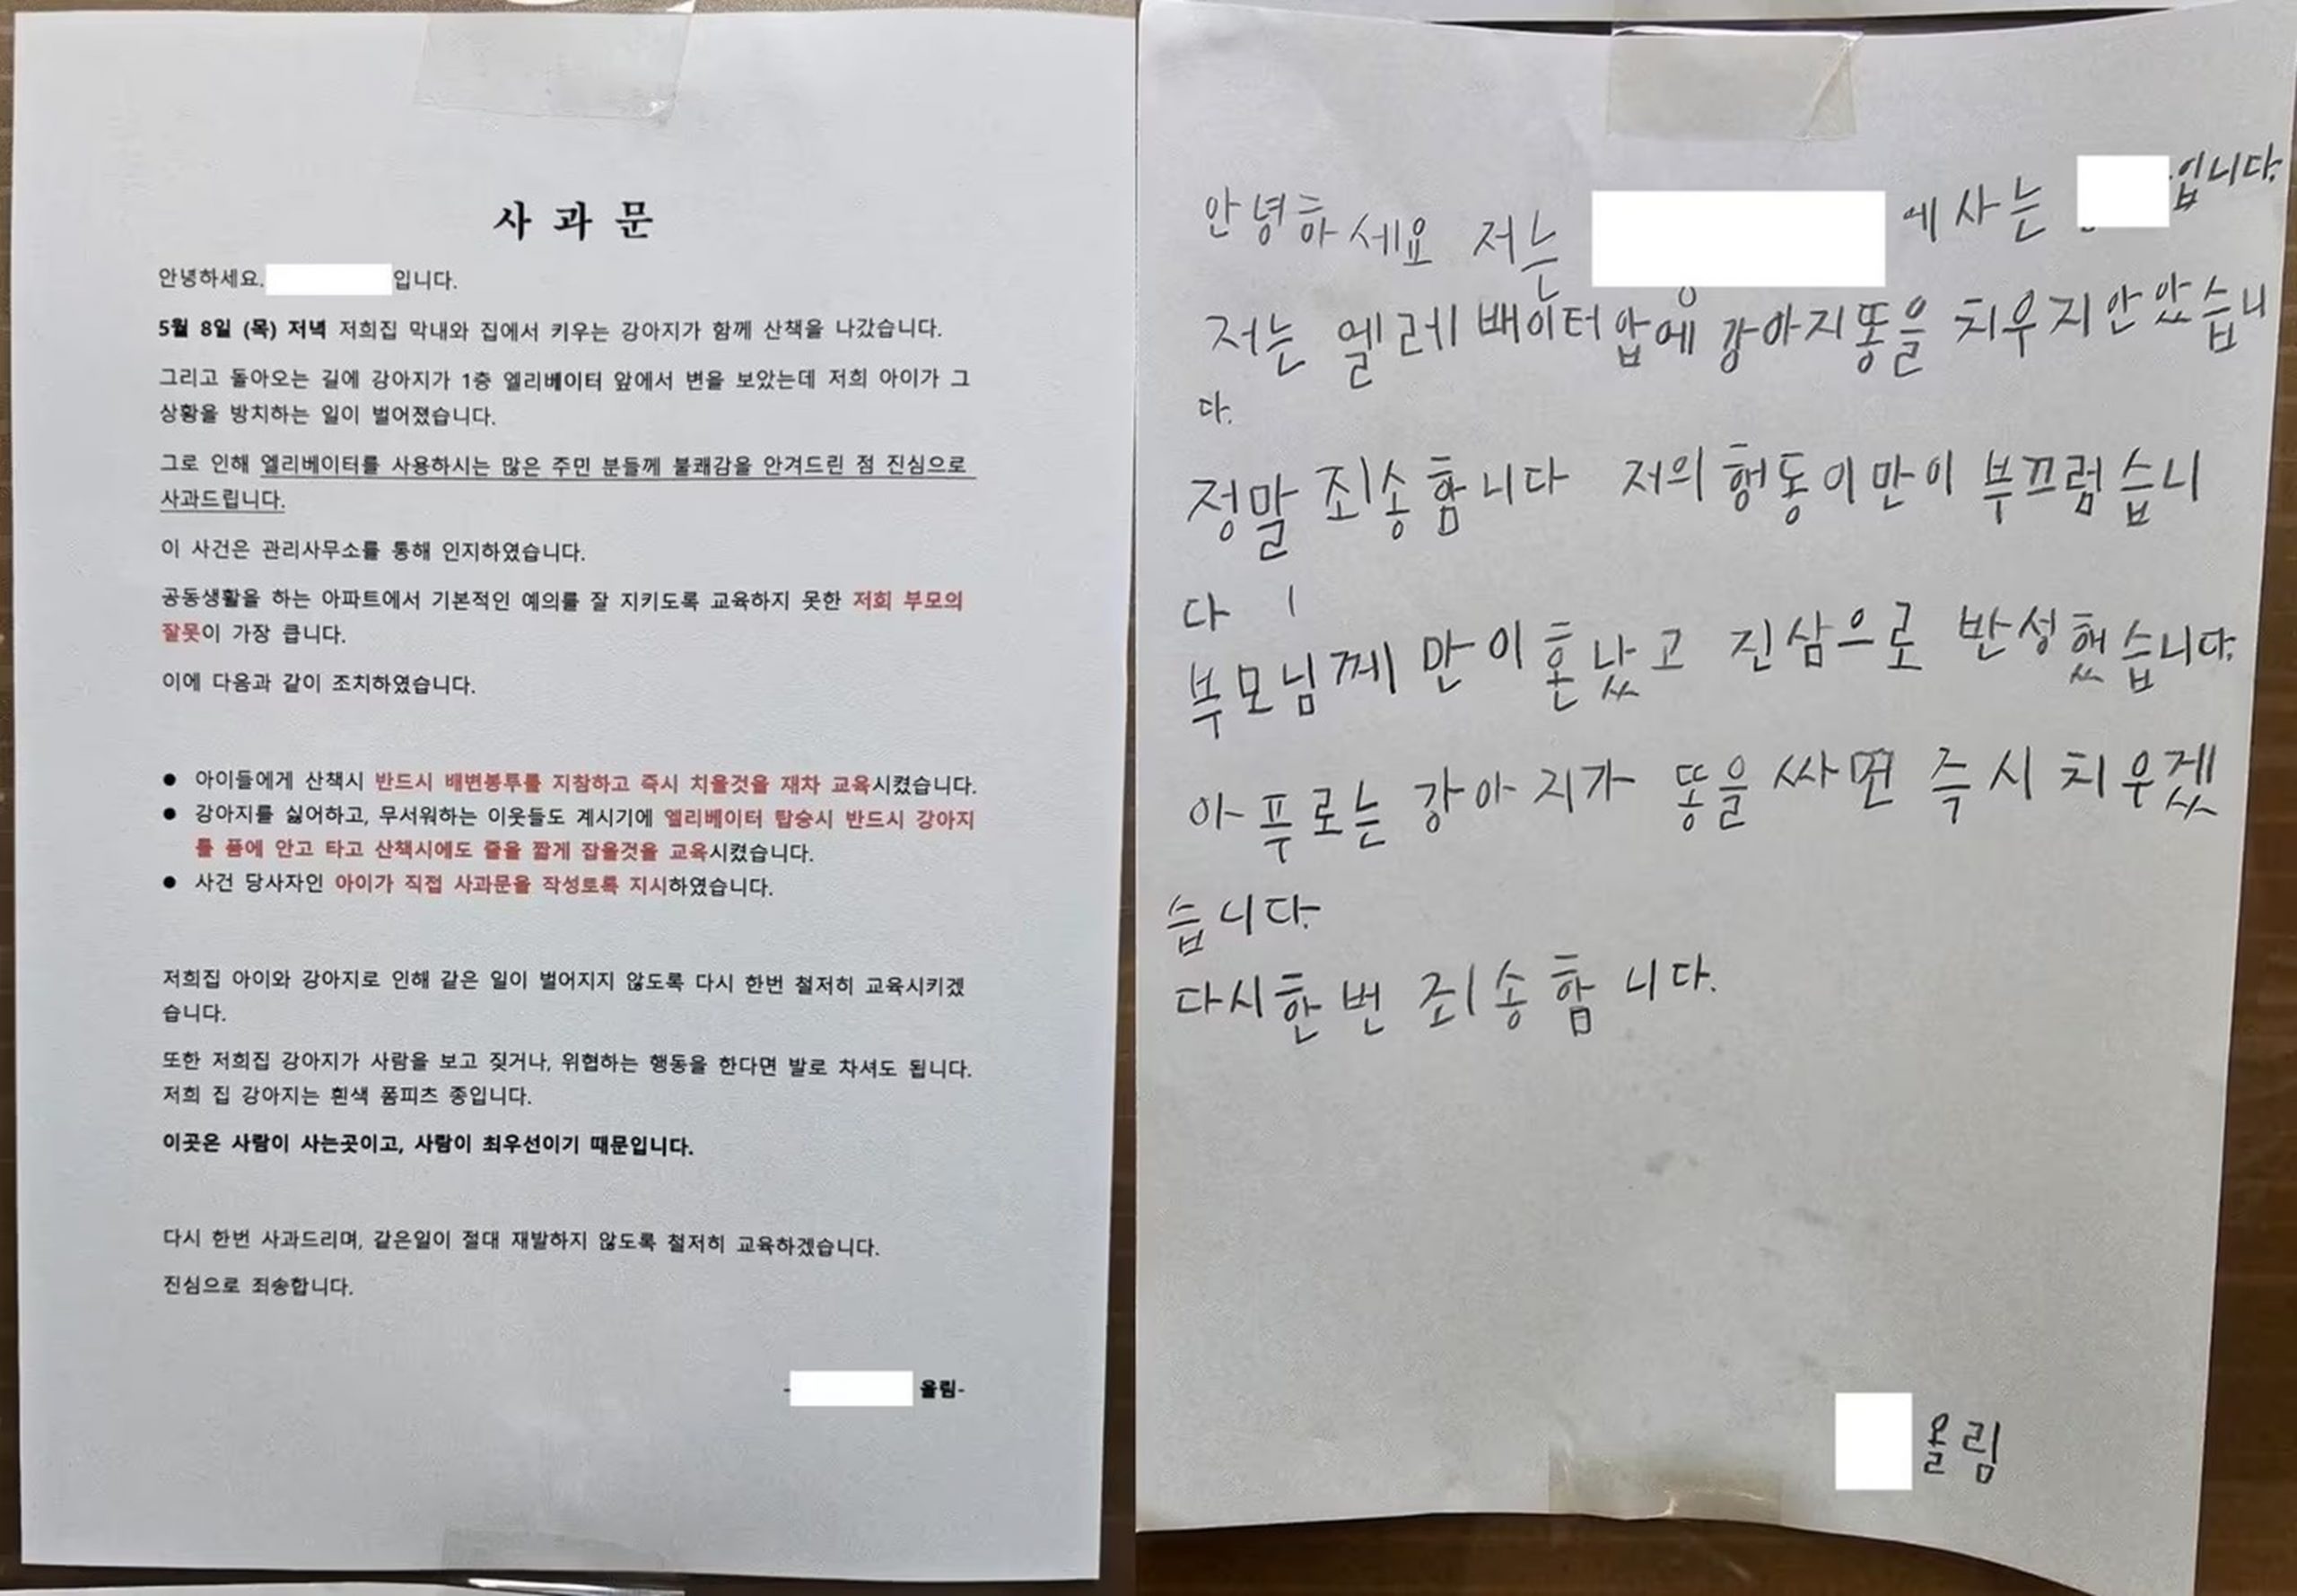 사 과 문
안녕하세요. 입니다.
5월 8일 (목) 저녁 저희집 막내와 집에서 키우는 강아지가 함께 산책을 나갔습니다.
그리고 돌아오는 길에 강아지가 1층 엘리베이터 앞에서 변을 보았는데 저희 아이가 그
상황을 방치하는 일이 벌어졌습니다.
그로 인해 엘리베이터를 사용하시는 많은 주민 분들께 불쾌감을 안겨드린 점 진심으로
사과드립니다.
이 사건은 관리사무소를 통해 인지하였습니다.
공동생활을 하는 아파트에서 기본적인 예의를 잘 지키도록 교육하지 못한 저희 부모의
잘못이 가장 큽니다.
이에 다음과 같이 조치하였습니다.
● 아이들에게 산책시 반드시 배변봉투를 지참하고 즉시 치울것을 재차 교육시켰습니다.
● 강아지를 싫어하고, 무서워하는 이웃들도 계시기에 엘리베이터 탑승시 반드시 강아지
를 품에 안고 타고 산책시에도 줄을 짧게 잡을것을 교육시켰습니다.
● 사건 당사자인 아이가 직접 사과문을 작성토록 지시하였습니다.
저희집 아이와 강아지로 인해 같은 일이 벌어지지 않도록 다시 한번 철저히 교육시키겠
습니다.
또한 저희집 강아지가 사람을 보고 짖거나, 위협하는 행동을 한다면 발로 차셔도 됩니다.
저희 집 강아지는 흰색 폼피츠 종입니다.
이곳은 사람이 사는곳이고, 사람이 최우선이기 때문입니다.
다시 한번 사과드리며, 같은일이 절대 재발하지 않도록 철저히 교육하겠습니다.
진심으로 죄송합니다.
- 올림-
안녕하세요 저는 에사는 입니다.
저는 엘레베이터압에 강아지똥을 치우지안았습니
다.
정말 죄송합니다 저의행동이만이 부끄럽습니
다
부모님께 만이혼났고 진삼으로 반성했습니다.
아푸로는 강아지가 똥을 싸면 즉시 치우겠
습니다.
다시한번 죄송합니다.
올림